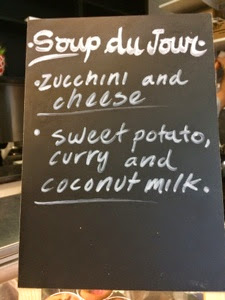 • Soup du Jour •
• zucchini and
cheese
• sweet potato,
curry and
coconut milk.